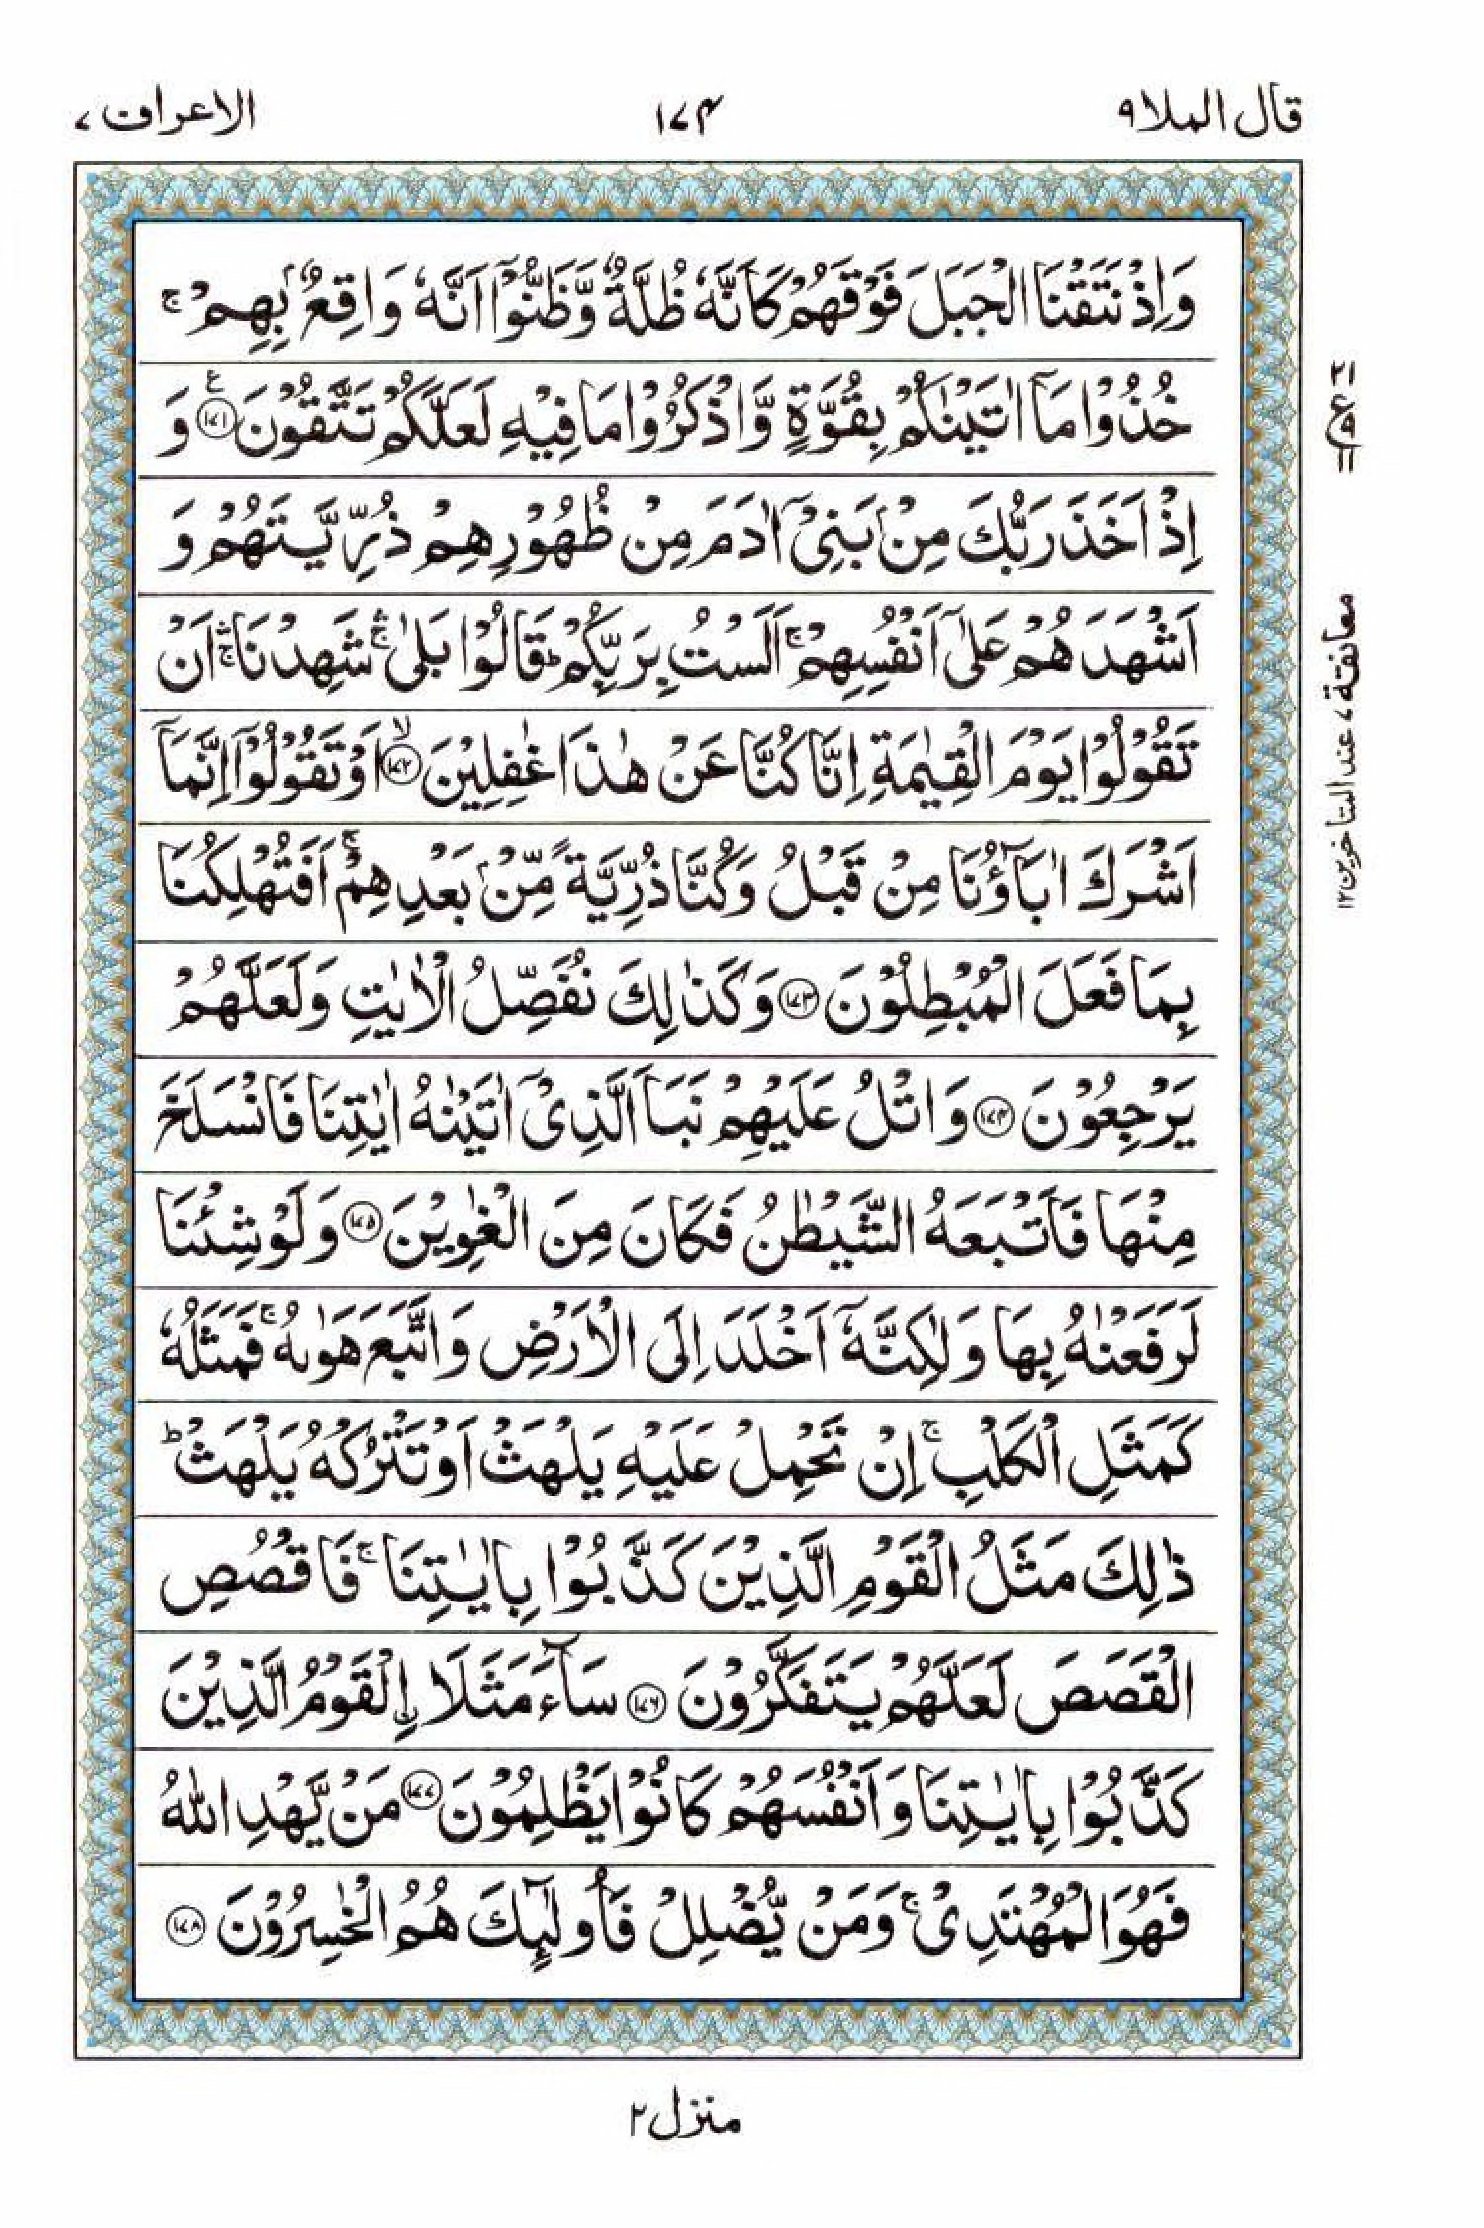 قال الملا ٩
١٧٤
الاعراف ٧
وَاِذْ نَتَقْنَا الْجَبَلَ فَوْقَهُمْ كَاَنَّهٗ ظُلَّةٌ وَّظَنُّوْۤا اَنَّهٗ وَاقِعٌۢ بِهِمْ ۚ
خُذُوْا مَاۤ اٰتَيْنٰكُمْ بِقُوَّةٍ وَّاذْكُرُوْا مَا فِيْهِ لَعَلَّكُمْ تَتَّقُوْنَ ﴿١٧١﴾ ع وَ
اِذْ اَخَذَ رَبُّكَ مِنْۢ بَنِيْۤ اٰدَمَ مِنْ ظُهُوْرِهِمْ ذُرِّيَّتَهُمْ وَ
اَشْهَدَهُمْ عَلٰۤى اَنْفُسِهِمْ ۚ اَلَسْتُ بِرَبِّكُمْ ؕ قَالُوْا بَلٰى ۛۚ شَهِدْنَا ۛۚ اَنْ
تَقُوْلُوْا يَوْمَ الْقِيٰمَةِ اِنَّا كُنَّا عَنْ هٰذَا غٰفِلِيْنَ ﴿١٧٢﴾ ۙ اَوْ تَقُوْلُوْۤا اِنَّمَاۤ
اَشْرَكَ اٰبَآؤُنَا مِنْ قَبْلُ وَكُنَّا ذُرِّيَّةً مِّنْۢ بَعْدِهِمْ ۚ اَفَتُهْلِكُنَا
بِمَا فَعَلَ الْمُبْطِلُوْنَ ﴿١٧٣﴾ وَكَذٰلِكَ نُفَصِّلُ الْاٰيٰتِ وَلَعَلَّهُمْ
يَرْجِعُوْنَ ﴿١٧٤﴾ وَاتْلُ عَلَيْهِمْ نَبَاَ الَّذِيْۤ اٰتَيْنٰهُ اٰيٰتِنَا فَانْسَلَخَ
مِنْهَا فَاَتْبَعَهُ الشَّيْطٰنُ فَكَانَ مِنَ الْغٰوِيْنَ ﴿١٧٥﴾ وَلَوْ شِئْنَا
لَرَفَعْنٰهُ بِهَا وَلٰكِنَّهٗۤ اَخْلَدَ اِلَى الْاَرْضِ وَاتَّبَعَ هَوٰىهُ ۚ فَمَثَلُهٗ
كَمَثَلِ الْكَلْبِ ۚ اِنْ تَحْمِلْ عَلَيْهِ يَلْهَثْ اَوْ تَتْرُكْهُ يَلْهَثْ ؕ
ذٰلِكَ مَثَلُ الْقَوْمِ الَّذِيْنَ كَذَّبُوْا بِاٰيٰتِنَا ۚ فَاقْصُصِ
الْقَصَصَ لَعَلَّهُمْ يَتَفَكَّرُوْنَ ﴿١٧٦﴾ سَآءَ مَثَلَا اِ۟لْقَوْمُ الَّذِيْنَ
كَذَّبُوْا بِاٰيٰتِنَا وَاَنْفُسَهُمْ كَانُوْا يَظْلِمُوْنَ ﴿١٧٧﴾ مَنْ يَّهْدِ اللّٰهُ
فَهُوَ الْمُهْتَدِيْ ۚ وَمَنْ يُّضْلِلْ فَاُولٰٓئِكَ هُمُ الْخٰسِرُوْنَ ﴿١٧٨﴾
معانقة ٧ عند المتاخرين ١٢
منزل ٢